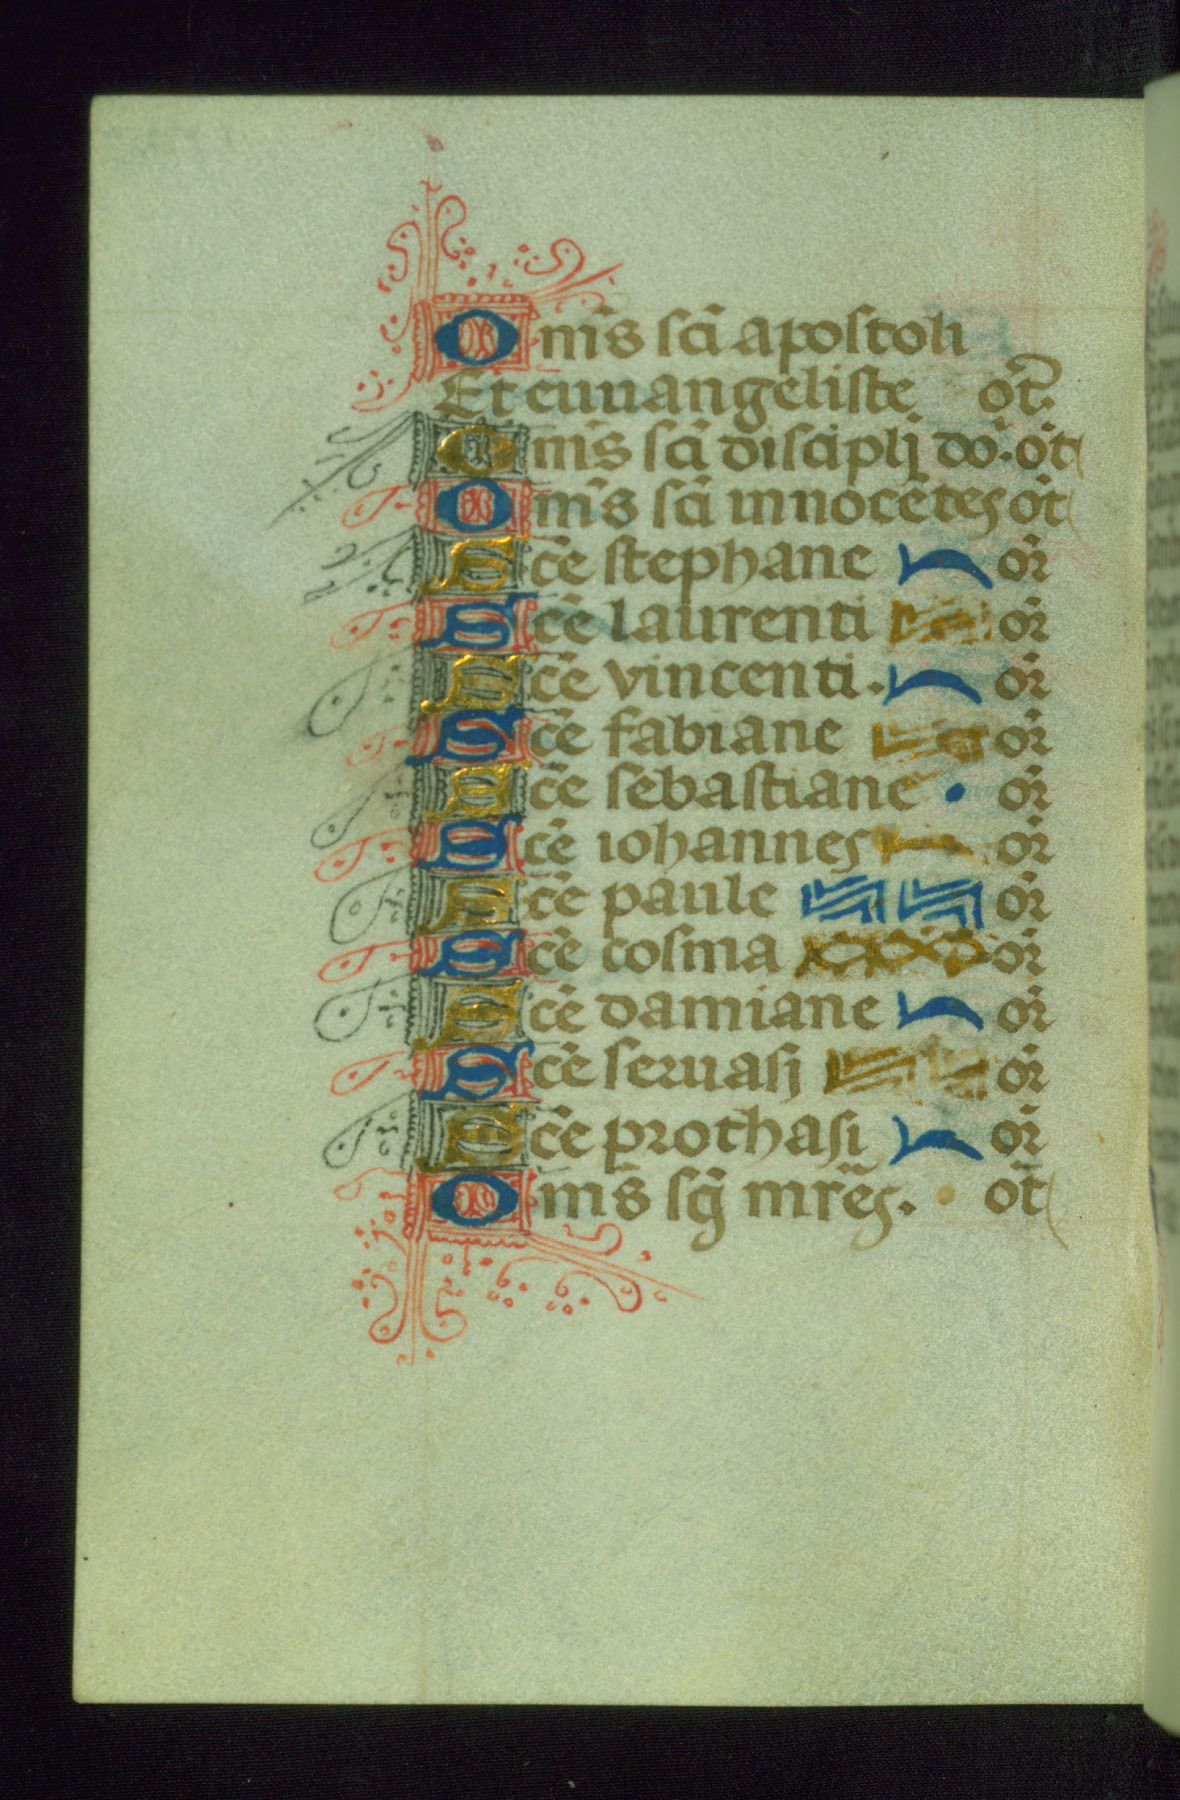 Om̄s sc̄i apostoli
Et euuangeliste or̄t.
Om̄s sc̄i discipl̄j do᷑. or̄t
Om̄s sc̄i innocētes or̄t
Sc̄e stephane or̄
Sc̄e laurenti or̄
Sc̄e vincenti. or̄
Sc̄e fabiane or̄
Sc̄e sebastiane. or̄
Sc̄e iohannes or̄
Sc̄e paule or̄
Sc̄e cosma or̄
Sc̄e damiane or̄
Sc̄e seruasij or̄
Sc̄e prothasi or̄
Om̄s sc̄ij mr̄es. or̄t